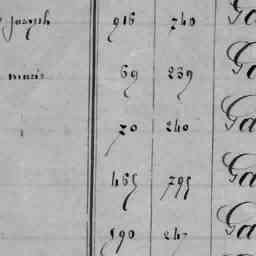 joseph 916 740 Ga
marie 69 239 Ga
70 240 Ga
465 795 Ga
590 247 Ga